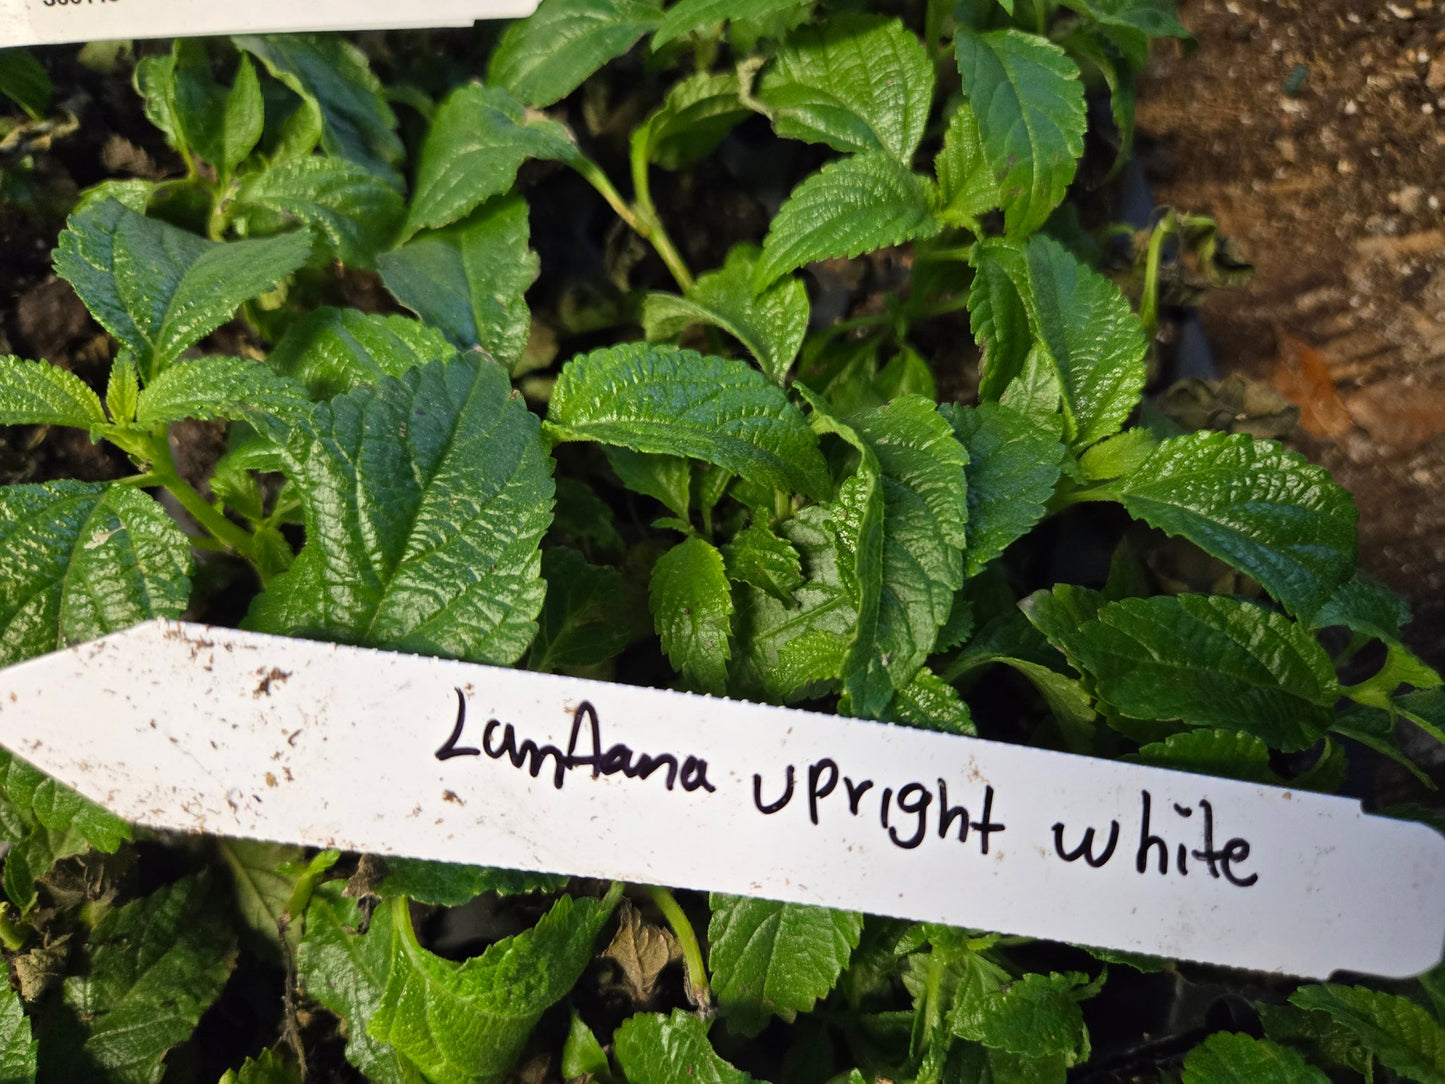 Lantana upright white